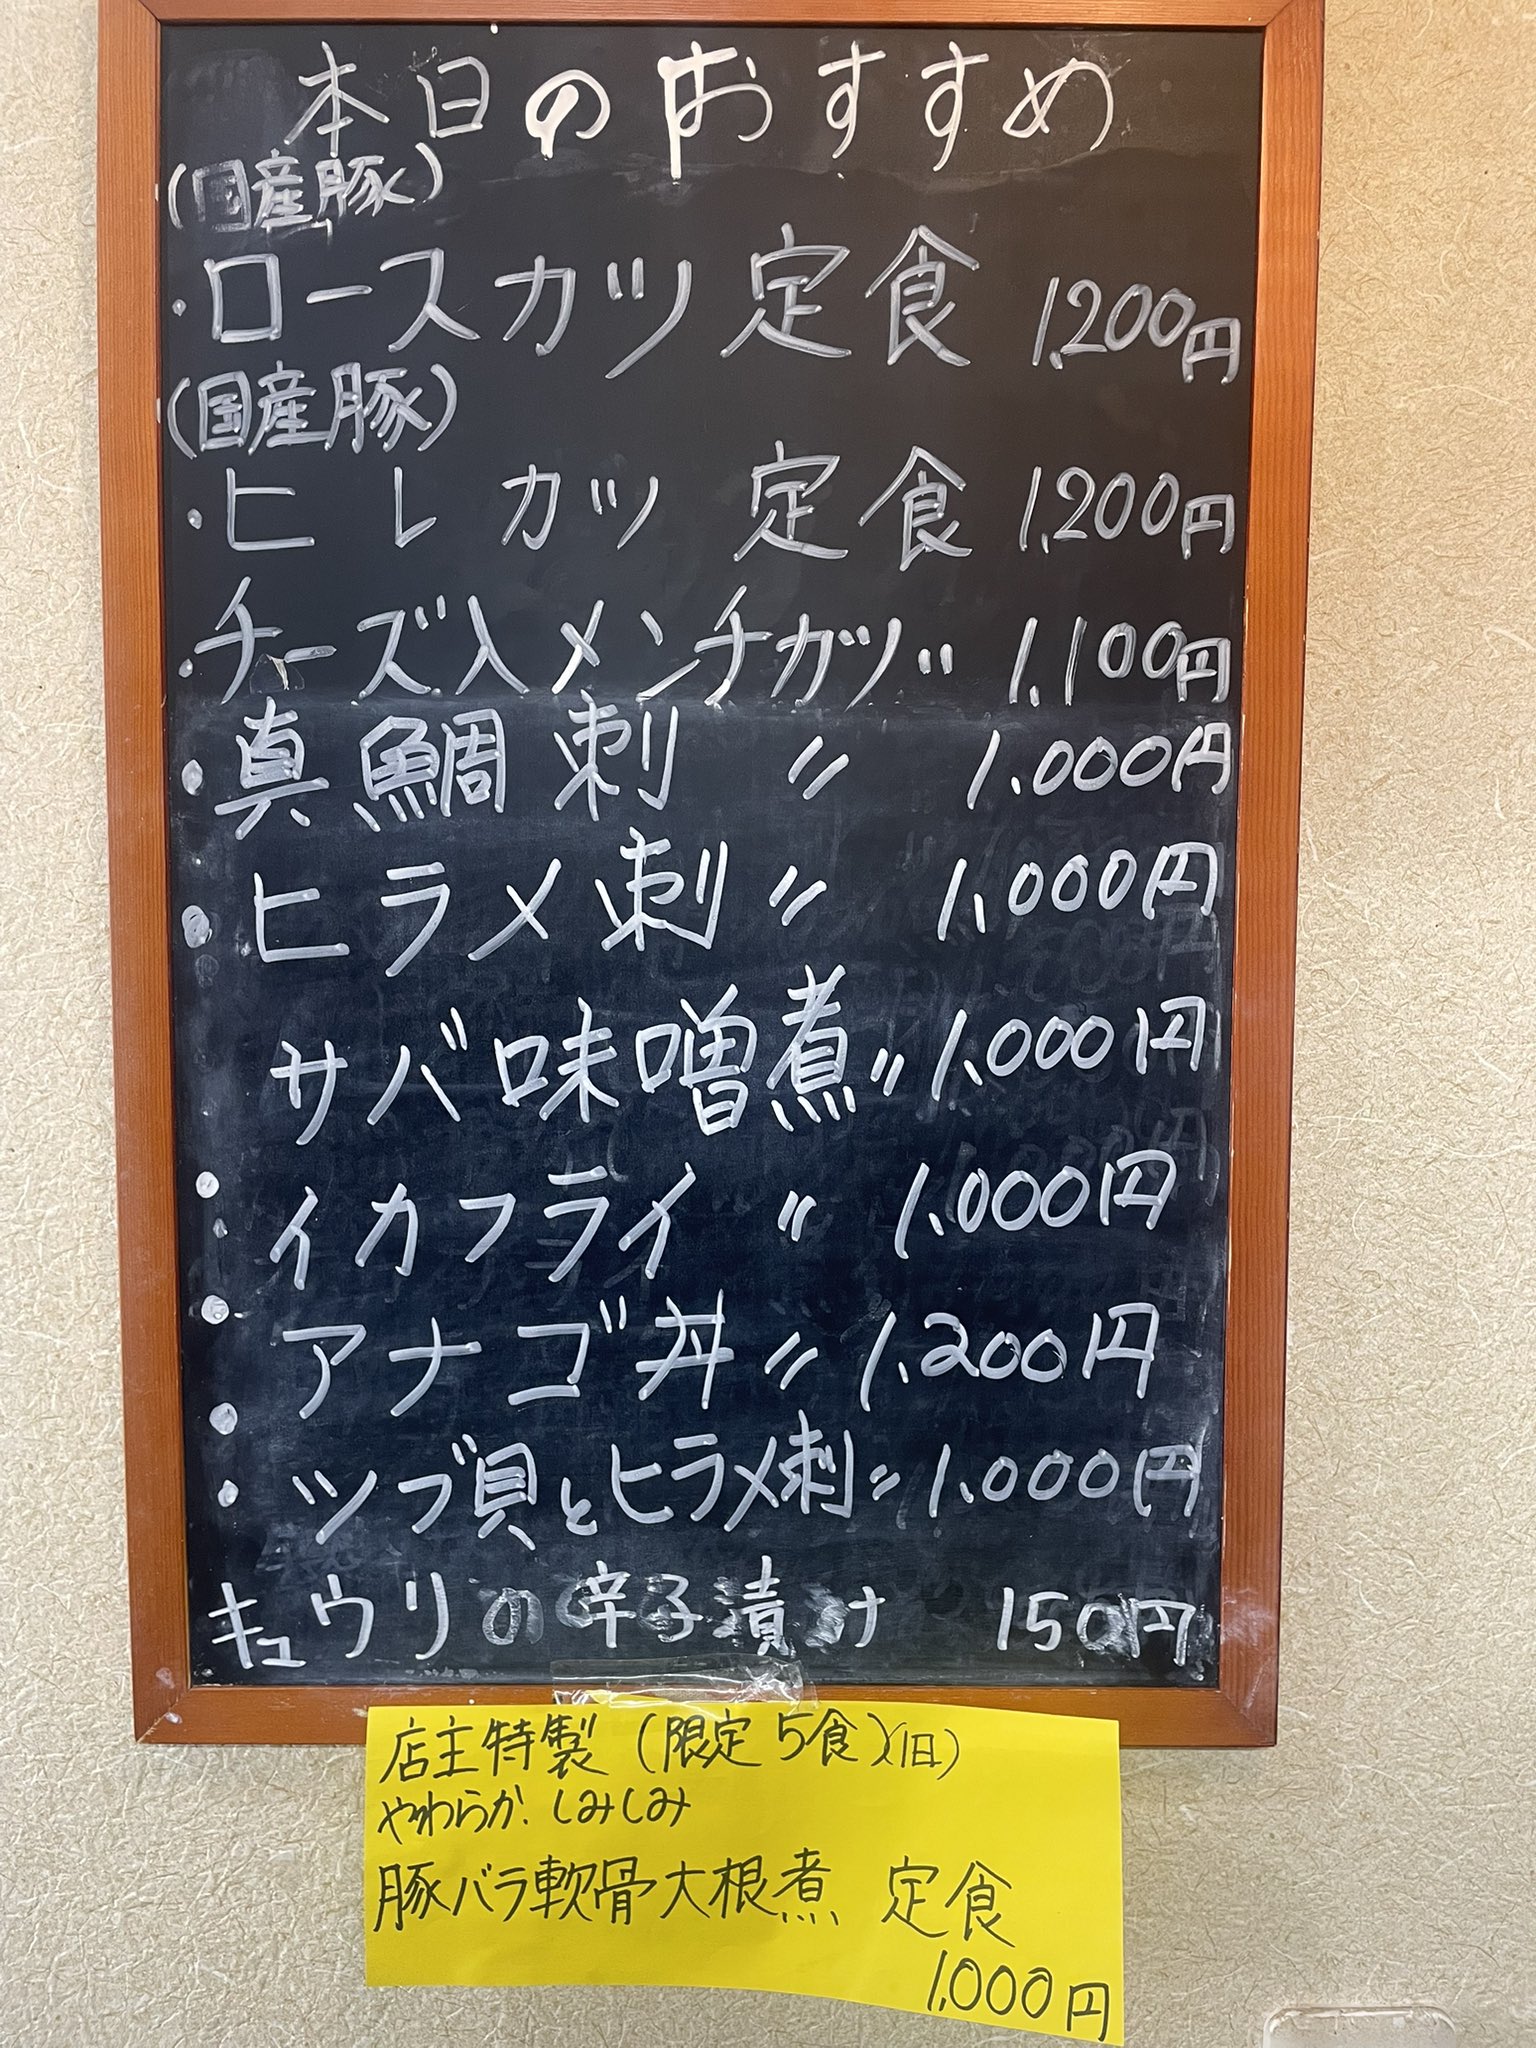 本日のおすすめ
(国産豚)
・ロースカツ定食 1,200円
(国産豚)
・ヒレカツ 定食 1,200円
・チーズ入メンチカツ 〃 1,100円
・真鯛刺 〃 1,000円
・ヒラメ刺 〃 1,000円
サバ味噌煮 〃 1,000円
・イカフライ 〃 1,000円
・アナゴ丼 〃 1,200円
・ツブ貝とヒラメ刺 〃 1,000円
キュウリの辛子漬け 150円
店主特製 (限定5食)(1日)
やわらか、しみしみ
豚バラ軟骨大根煮 定食
1,000円